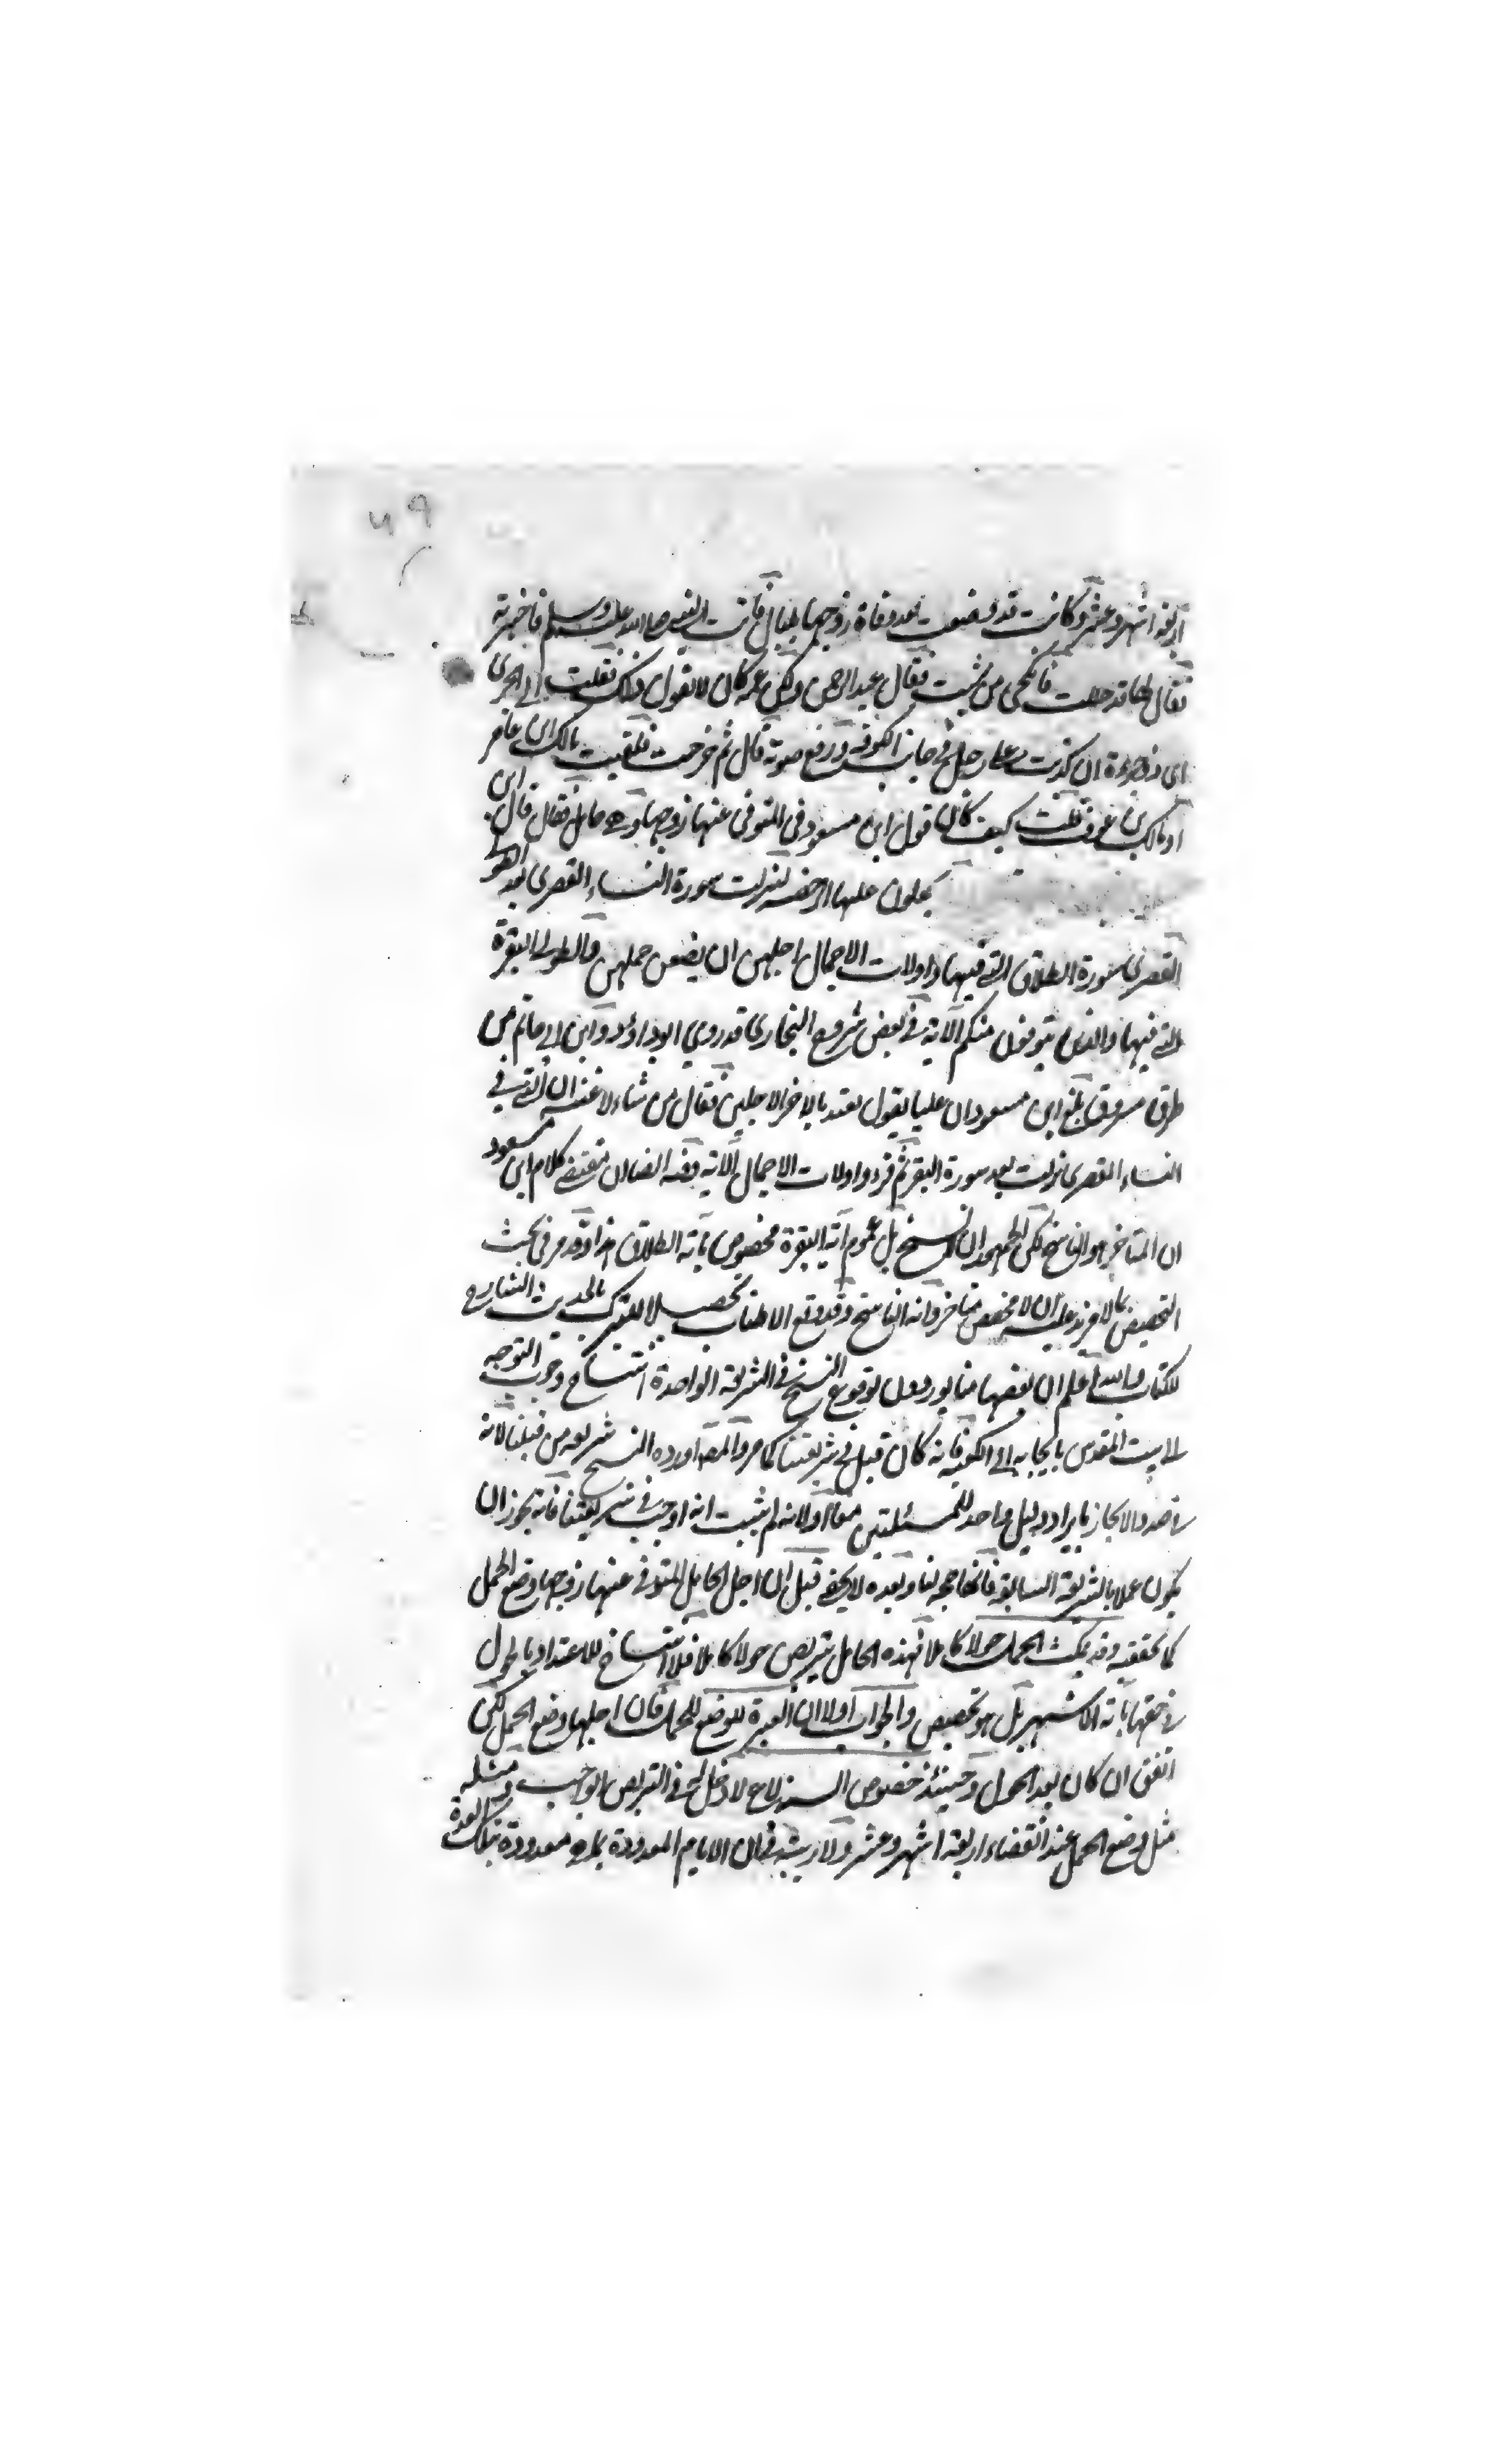 ۴۹
اربعة اشهر وعشر وكانت قد وضعت بعد وفاة زوجها بليال فاتت النبي صلى الله عليه وسلم فاخبرته
فقال لها قد حللت فانكحي من شئت فقال عبد الرحمن ولكن عمه كان لا يقول ذلك فقلت اني لجرى
اي ذو جراءة ان كذبت على رجل في جانب الكوفة ورفع صوته قال ثم خرجت فلقيت مالك ابن عامر
او مالك بن عوف قلت كيف كان قول ابن مسعود في المتوفى عنها زوجها وهي حامل فقال قال ابن
يجعلون عليها الرخصة لنزلت سورة النساء القصرى بعد الطولى
القصرى سورة الطلاق التي فيها واولات الاحمال اجلهن ان يضعن حملهن والطولى البقرة
التي فيها والذين يتوفون منكم الآية في بعض شروح البخاري قد روى ابو داؤد وابن ابي حاتم من
طرق مسروق بلغ ابن مسعود ان عليا يقول تعتد باخر الاجلين فقال من شاء لاعنته ان التي في
النساء القصرى نزلت بعد سورة البقرة ثم قرء واولات الاحمال الآية وفيه ايضا ان مقتضى كلام ابن مسعود
ان المتاخر هو الناسخ لكن الجمهور ان لا نسخ بل عموم آية البقرة مخصوص بآية الطلاق هذا وقد مر في بحث
التخصيص بما لا مزيد عليه ان لا مخصص متاخر وانه الناسخ وقد وقع الاطناب تحصيلا للتبرك بالحديث الشارح
للكتاب والله اعلم ان بعضها مما يوردون لوقوع النسخ في الشريعة الواحدة انتساخ وجوب التوجه
الى بيت المقدس بايجابه الى الكعبة فانه كان قبل في شريعتنا كما مر والمصـ اورده النسخ شريعة من قبلنا لانه
في صدد الايجاز بايراد دليل واحد للمسئلتين معا اولا انه لم يثبت انه اوجب في شريعتنا فانه يجوز ان
يكون عملا بالشريعة السابقة فانها حجة لنا وبعده لا يخفى قيل ان اجل الحامل المتوفى عنها زوجها وضع الحمل
كما تحققته وقد يمكث الحمل حولا كاملا فهذه الحامل تتربص حولا كاملا فلا انتساخ للاعتداد بالحول
في حقها بآية الاشهر بل هو تخصيص والجواب اولا ان العبرة لوضع الحمل فان اجلها وضع الحمل لكن
اتفق ان كان بعد الحول وحينئذ خصوص السنة لاغ لا دخل له في التربص الواجب ومثله
مثل وضع الحمل عند انقضاء اربعة اشهر وعشر ولا ريب في ان الايام المعدودة بما هي معدودة بتلك العدة